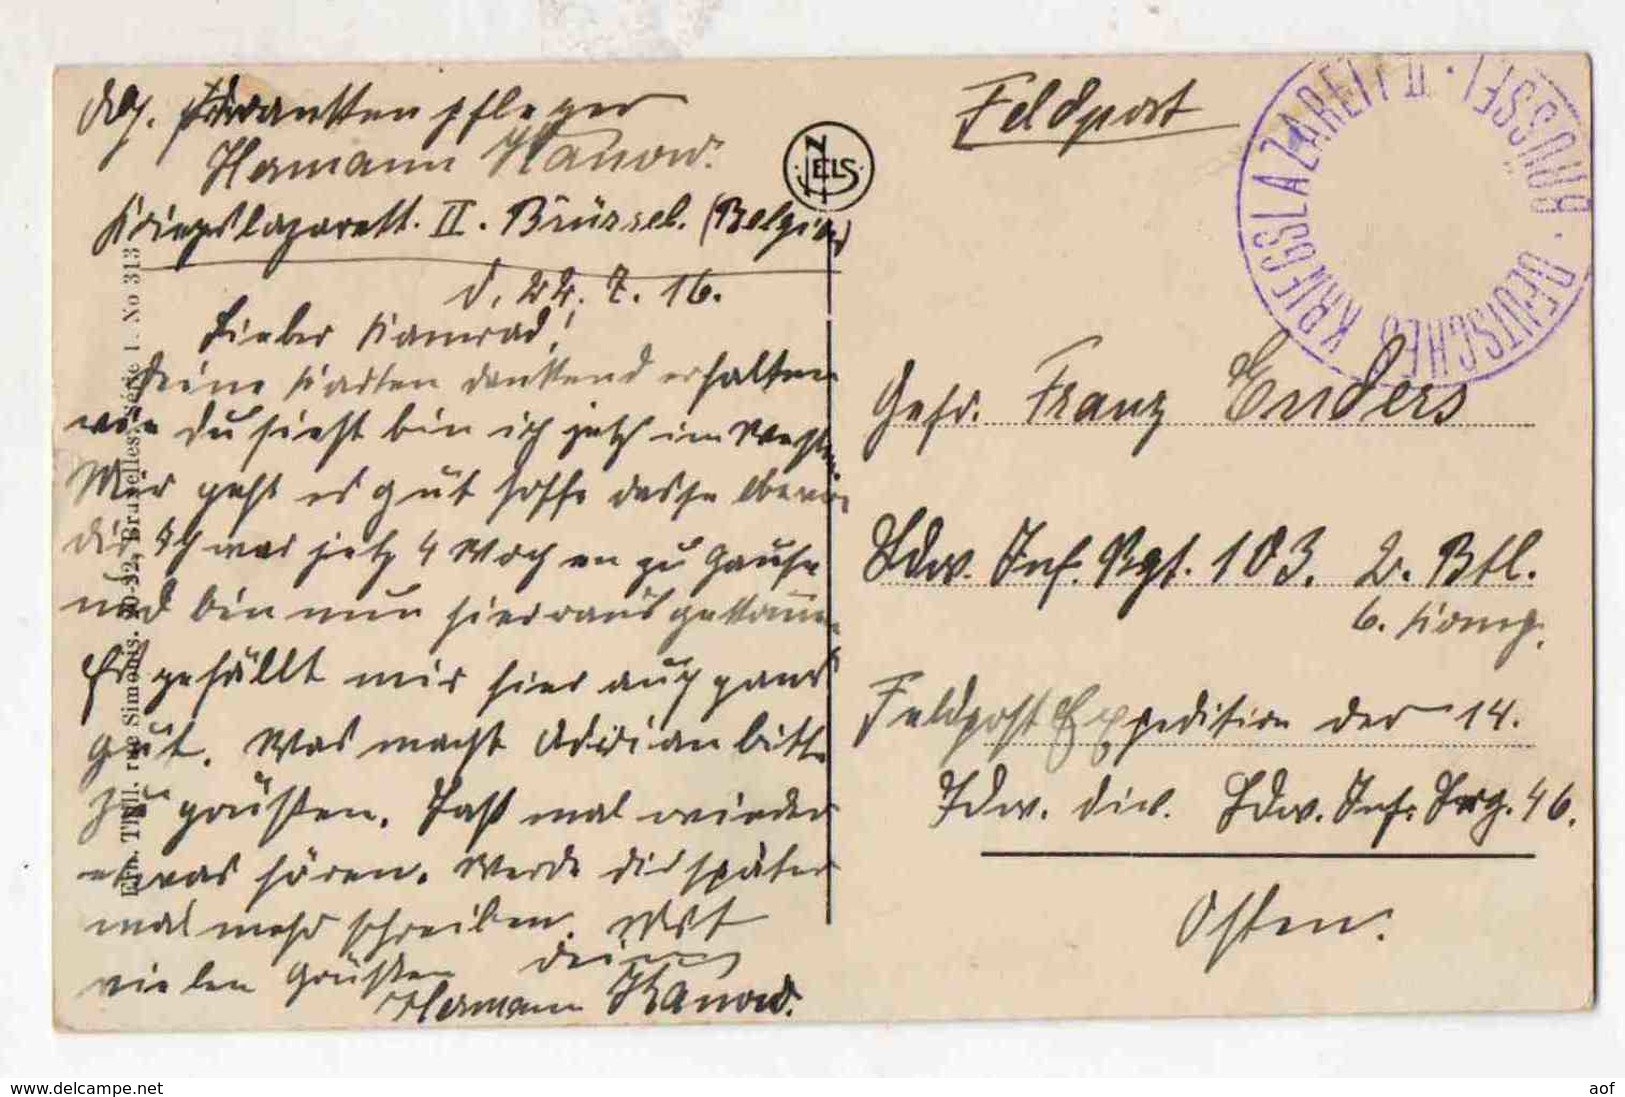 Abs. Krankenpfleger
Hermann Kanow.
Kriegslazarett. II. Brüssel. (Belgien)
d. 24. 7. 16.
Lieber Kamrad!
Deine Karten dankend erhalten
wie du siehst bin ich jetzt im Westen
Mir geht es gut hoffe dasse
dir Ich war jetz 4 Wochen zu Hause
und bin nun hieraus gekommen
Es gefällt mir hier auch ganz
gut. Was macht Adrian bitte
zu grüßen. Laß mal wieder
etwas hören. Werde dir später
mal mehr schreiben. Mit
vielen Grüßen dein
Hermann Kanow.
Ern. Thill, rue Simonis, 30-32, Bruxelles. Série 1. No 313
NELS
Feldpost
DEUTSCHES KRIEGSLAZARETT II · BRÜSSEL ·
Gefr. Franz Enders
Ldw. Inf. Rgt. 103. 2. Btl.
6. Komp.
Feldpost Expedition der 14.
Ldw. div. Ldw. Inf. Brg. 46.
Osten.
www.delcampe.net
aof